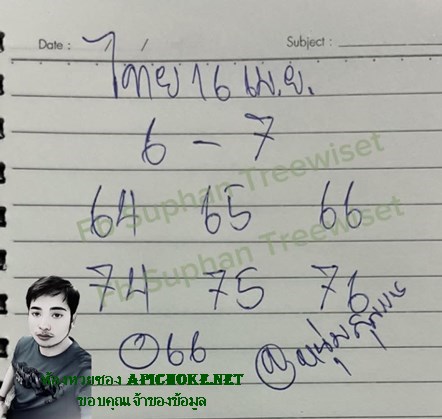 Date : Subject :
ไทย 16 เม.ย.
6 - 7
64 65 66
74 75 76
066
Fb Suphan Treewiset
Fb Suphan Treewiset
ห้องหวยซอง APICHOKE.NET
ขอบคุณเจ้าของข้อมูล